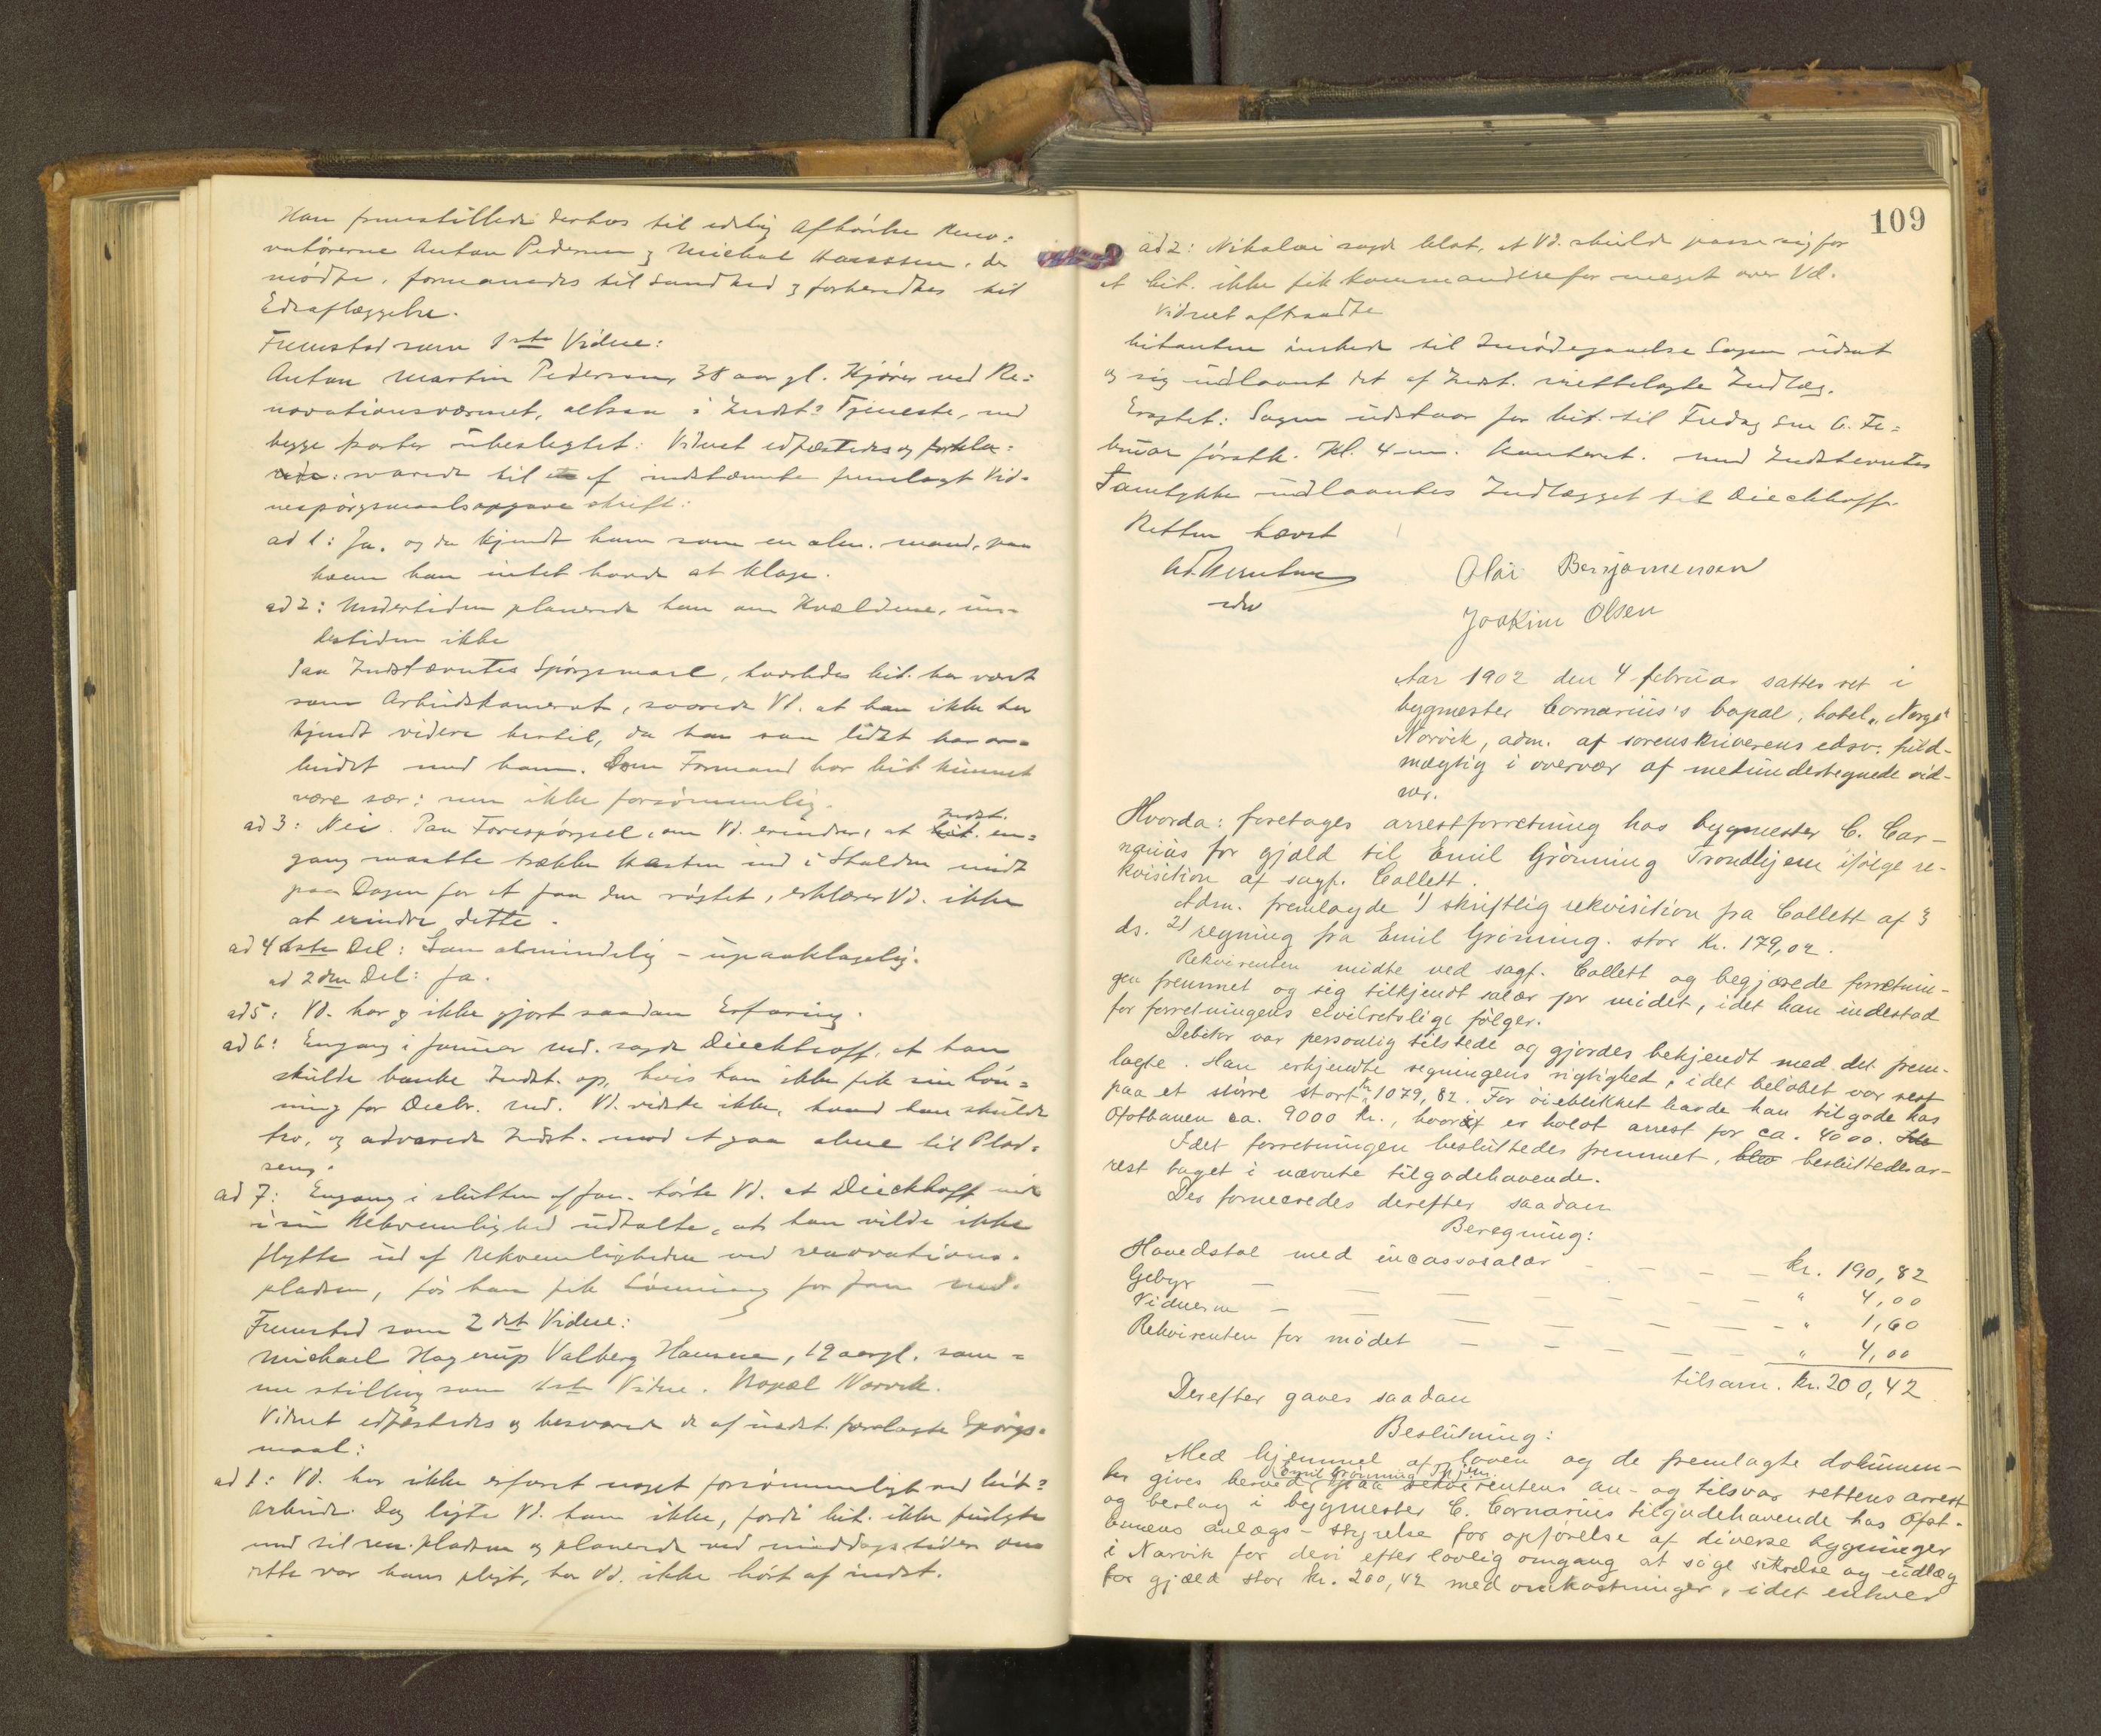 Han fremstillede derhos til edelig Afhörelse Reno-
vatörerne Anton Pedersen og Michal Hanssen, de
mödte, formanedes til Sandhed og forberedtes til
Edsaflæggelse.
Fremstod som 1ste Vidne:
Anton Martin Pedersen, 38 aar gl. Kjörer ved Re-
novationsvæsenet, altsaa i Indst.s Tjeneste, med
begge parter ubeslegtet. Vidnet edfæstedes og forkla-
rede: svarede til de af indstævnte fremlagt Vid-
nespörgsmaalsopgave skrift:
ad 1: Ja, og da kjendt ham som en alm. mand, paa
hvem han intet havde at klage.
ad 2: Undertiden planerede han om Kvældene, un-
dertiden ikke
Paa Indstævntes Spörgsmaal, hvorledes Cit. har været
som Arbeidskamerat, svarede Vd. at han ikke har
kjendt videre hertil, da han saa lidet har ar-
beidet med ham. Som Formand har Cit. kunnet
være sær; men ikke forsömmelig.
ad 3: Nei. Paa Forespörgsel, om Vd. erindrer, at Cit. Indst. en-
gang maatte trække Hesten ind i Stalden midt
paa Dagen for at faa den rögtet, erklærer Vd. ikke
at erindre dette.
ad 4 1ste Del: Som almindelig - upaaklagelig.
ad 2den Del: Ja.
ad 5: Vd. har og ikke gjort saadan Erfaring.
ad 6: Engang i Januar md. sagde Dieckhoff, at han
skulde banke Indst. op, hvis han ikke fik sin Lön-
ning for Decbr. md. Vd. vidste ikke, hvad han skulde
tro, og advarede Indst. mod at gaa alene til Plad-
sen.
ad 7: Engang i slutten af Jan. hörte Vd. at Dieckhoff
i sin Bekvemlighed udtalte, at han vilde ikke
flytte ud af Bekvemligheden ved renovations-
pladsen, för han fik Lönning for Jan. md.
Fremstod som 2det Vidne:
Michael Hagerup Valberg Hansen, 19 aar gl. sam-
me stilling som 1ste Vidne. Bopæl Narvik.
Vidnet edfæstedes og besvarede de af indst. forelagte Spörgs-
maal:
ad 1: Vd. har ikke erfaret noget forsömmeligt ved Cit.s
Arbeide. Dog ligte Vd. ham ikke, fordi Cit. ikke fulgte
med til ren.pladsen og planerede ved middagstider. Om
dette var hans pligt, har Vd. ikke hört af indst.
109
ad 2: Nikolai sagde blot, at Vd. skulde passe sig for
at Cit. ikke fik kommandere for meget over Vd.
Vidnet aftraadte
Citanten önskede til Imödegaaelse Sagen udsat
og sig udlaant det af Indst. irettelagte Indlæg.
Eragtet: Sagen udstaar for Cit. til Tirsdag den 6. Fe-
bruar förstk. Kl. 4 em. Kontoret. Med Indstevntes
Samtykke udlaantes Indlægget til Dieckhoff.
Retten hævet
Olai Benjamensen
Joakim Olsen
Aar 1902 den 4 februar sattes ret i
bygmester Cornarius's bopæl, hotel „Norge"
Narvik, adm. af sorenskriverens edsv. fuld-
mægtig i overvær af medundertegnede vid-
ner.
Hvorda: foretages arrestforretning hos bygmester C. Cor-
narius for gjæld til Emil Grönning Trondhjem ifölge re-
kvisition af sagf. Collett.
Adm. fremlagde 1) skriftlig rekvisition fra Collett af 3
ds. 2) regning fra Emil Grönning. stor Kr. 179,02.
Rekvirenten mödte ved sagf. Collett og begjærede forretnin-
gen fremmet og sig tilkjendt salær for mödet, idet han indestod
for forretningens civilretslige fölger.
Debitor var personlig tilstede og gjordes bekjendt med det frem-
lagte. Han erkjendte regningens rigtighed, idet belöbet var rest
paa et större stort kr. 1079,82. For öieblikket havde han tilgode hos
Ofotbanen ca. 9000 kr., hvoraf er holdt arrest for ca. 4000.
Idet forretningen besluttedes fremmet, blev besluttedes ar-
rest taget i nævnte tilgodehavende.
Der formeredes derefter saadan
Beregning:
Hovedstol med incassosalær - - - - kr. 190,82
Gebyr - - - - - - - " 4,00
Vidnerne - - - - - - - " 1,60
Rekvirenten for mödet - - - - - " 4,00
tilsam. kr. 200,42
Derefter gaves saadan
Beslutning:
Med hjemmel af loven og de fremlagte dokumen-
ter gives herved (Emil Grönning Thjem) paa rekvirentens an- og tilsvar rettens arrest
og beslag i bygmester C. Cornarius tilgodehavende hos Ofot-
banens anlægs-styrelse for opförelse af diverse bygninger
i Narvik for deri efter lovlig omgang at söge sikrelse og udlæg
for gjæld stor kr. 200,42 med omkostninger, idet enhver